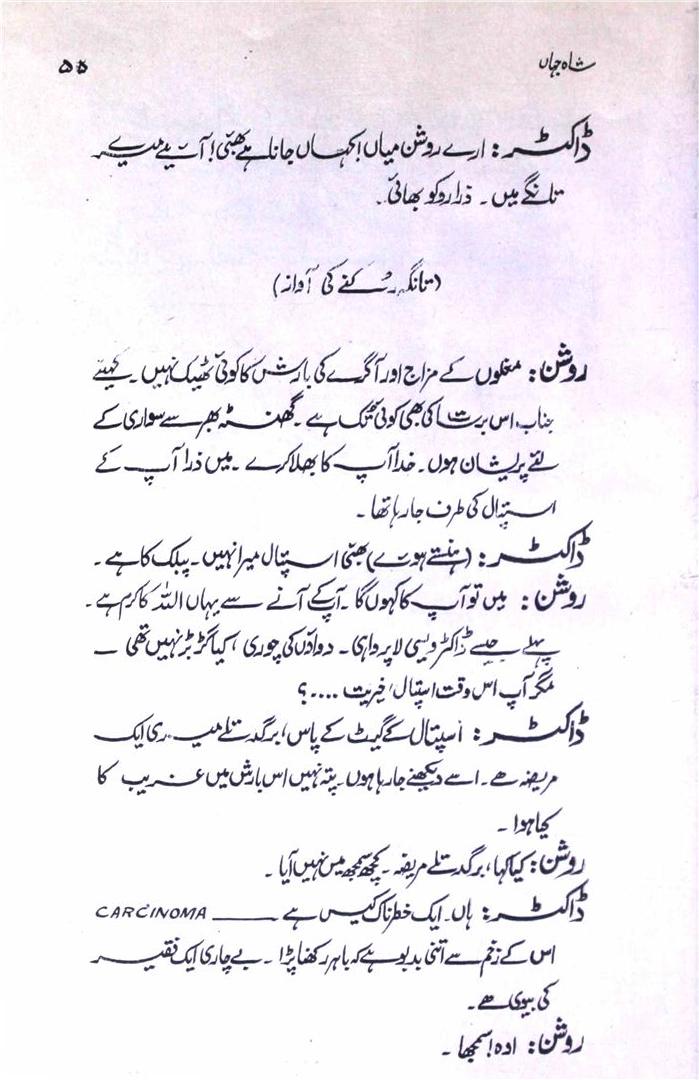 شاہ جہاں
۵۵
ڈاکٹر: ارے روشن میاں! کہاں جانا ہے بھئی! آیئے میرے
تانگے میں۔ ذرا روکو بھائی۔
(تانگہ رکنے کی آواز)
روشن: مغلوں کے مزاج اور آگرے کی بارش کا کوئی ٹھیک نہیں۔ کہیئے
جناب، اس برسات کی بھی کوئی تک ہے۔ گھنٹہ بھر سے سواری کے
لئے پریشان ہوں۔ خدا آپ کا بھلا کرے۔ میں ذرا آپ کے
اسپتال کی طرف جا رہا تھا۔
ڈاکٹر: (ہنستے ہوئے) بھئی اسپتال میرا نہیں۔ پبلک کا ہے۔
روشن: میں تو آپ کا کہوں گا۔ آپ کے آنے سے یہاں اللہ کا کرم ہے۔
پہلے جیسے ڈاکٹر ویسی لاپرواہی۔ دواؤں کی چوری، کیا گڑبڑ نہیں تھی۔
مگر آپ اس وقت اسپتال، خیریت ....؟
ڈاکٹر: اسپتال کے گیٹ کے پاس، برگد تلے میری ایک
مریضہ ہے۔ اسے دیکھنے جا رہا ہوں۔ پتہ نہیں اس بارش میں غریب کا
کیا ہوا۔
روشن: کیا کہا، برگد تلے مریضہ۔ کچھ سمجھ میں نہیں آیا۔
ڈاکٹر: ہاں۔ ایک خطرناک کیس ہے ——— CARCINOMA
اس کے زخم سے اتنی بدبو ہے کہ باہر رکھنا پڑا۔ بے چاری ایک فقیر
کی بیوی ہے۔
روشن: اوہ! سمجھا۔